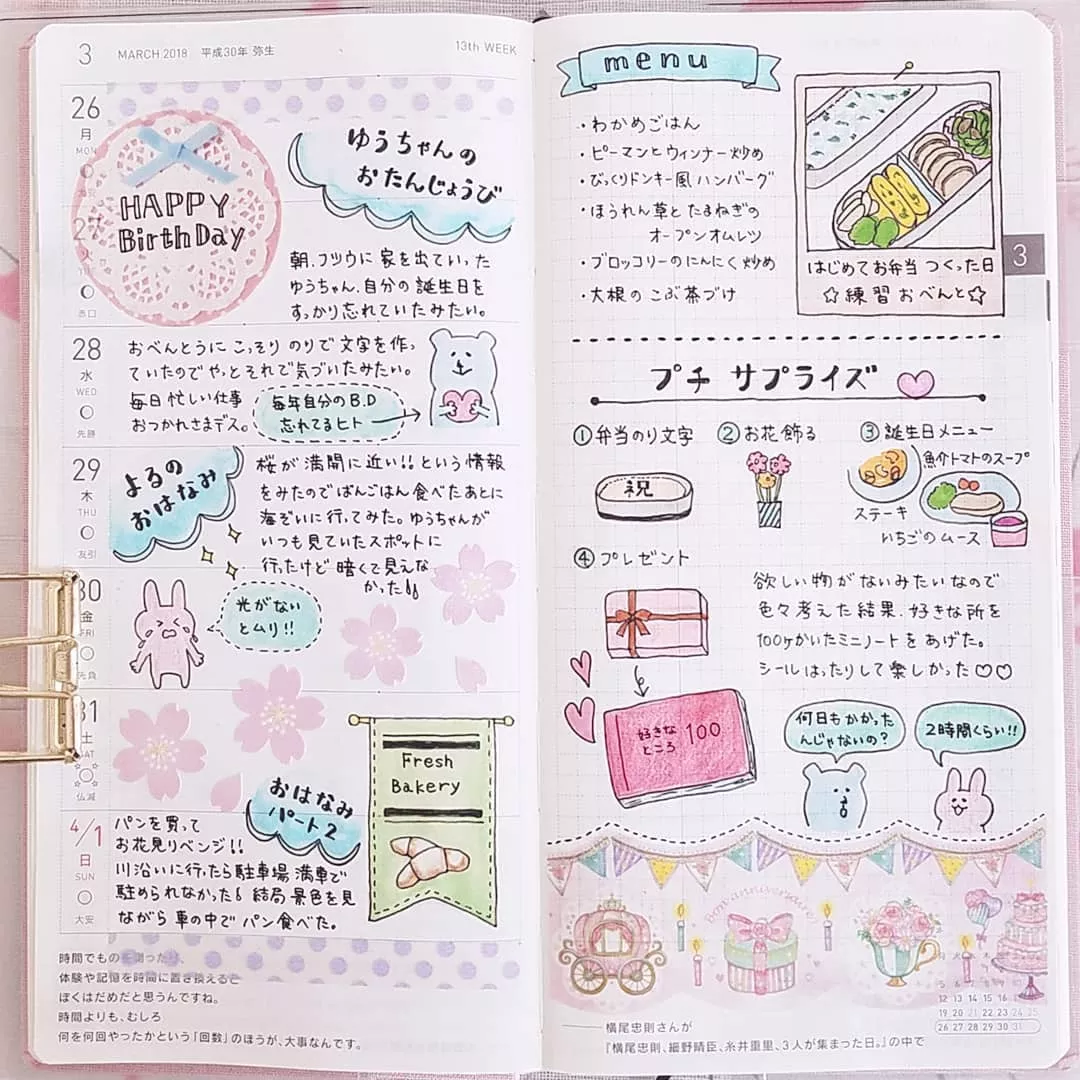 3 MARCH 2018 平成30年 弥生
13th WEEK
26
月
MON
HAPPY
BirthDay
ゆうちゃんの
おたんじょうび
27
火
赤口
朝、フツウに 家を出ていった
ゆうちゃん、自分の 誕生日を
すっかり忘れていたみたい。
28
水
WED
先勝
おべんとうに こっそり のりで 文字を作っ
ていたので やっと それで気づいたみたい。
毎日 忙しい仕事
おつかれさまデス。
毎年自分のB.D
忘れてるヒト
29
木
THU
友引
よるの
おはなみ
桜が 満開に近い!! という 情報
をみたので ばんごはん 食べたあとに
海ぞいに 行ってみた。ゆうちゃんが
いつも 見ていた スポットに
行ったけど 暗くて 見えな
かった
30
金
FRI
先負
光がない
とムリ!!
31
土
SAT
仏滅
Fresh
Bakery
おはなみ
パート2
4/1
日
SUN
大安
パンを 買って
お花見リベンジ!!
川沿いに 行ったら 駐車場 満車で
駐められなかった 結局 景色を見
ながら 車の中で パン食べた。
時間でものを測ったり、
体験や記憶を時間に置き換えると
ぼくはだめだと思うんですね。
時間よりも、むしろ
何を何回やったかという「回数」のほうが、大事なんです。
menu
・わかめごはん
・ピーマンとウィンナー炒め
・びっくりドンキー風 ハンバーグ
・ほうれん草と たまねぎの
オープンオムレツ
・ブロッコリーの にんにく 炒め
・大根の こぶ茶づけ
はじめてお弁当 つくった日
☆練習おべんと☆
3
プチ サプライズ
①弁当のり文字
②お花飾る
③誕生日メニュー
祝
魚介トマトのスープ
ステーキ
いちごのムース
④プレゼント
欲しい物がないみたいなので
色々考えた結果、好きな所を
100ヶかいたミニノートを あげた。
シールはったりして 楽しかった♡♡
好きな
ところ 100
何日もかかった
んじゃないの?
2時間くらい!!
Bon anniversaire
12 13 14 15 16 17 18
19 20 21 22 23 24 25
26 27 28 29 30 31
横尾忠則さんが
『横尾忠則、細野晴臣、糸井重里、3人が集まった日。』の中で